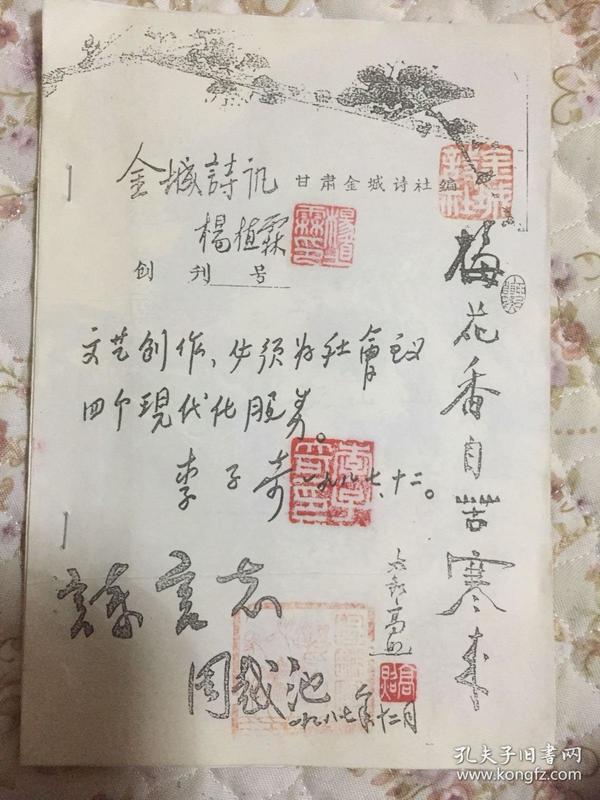 金城詩訊 甘肃金城诗社编
楊植霖
创刊号
文艺创作,必须为社會主义
四个現代化服务。
李子奇 一九八七、十二。
梅花香自苦寒来
詩言志
周越池
一九八七年十二月
孔夫子旧书网
www.kongfz.com